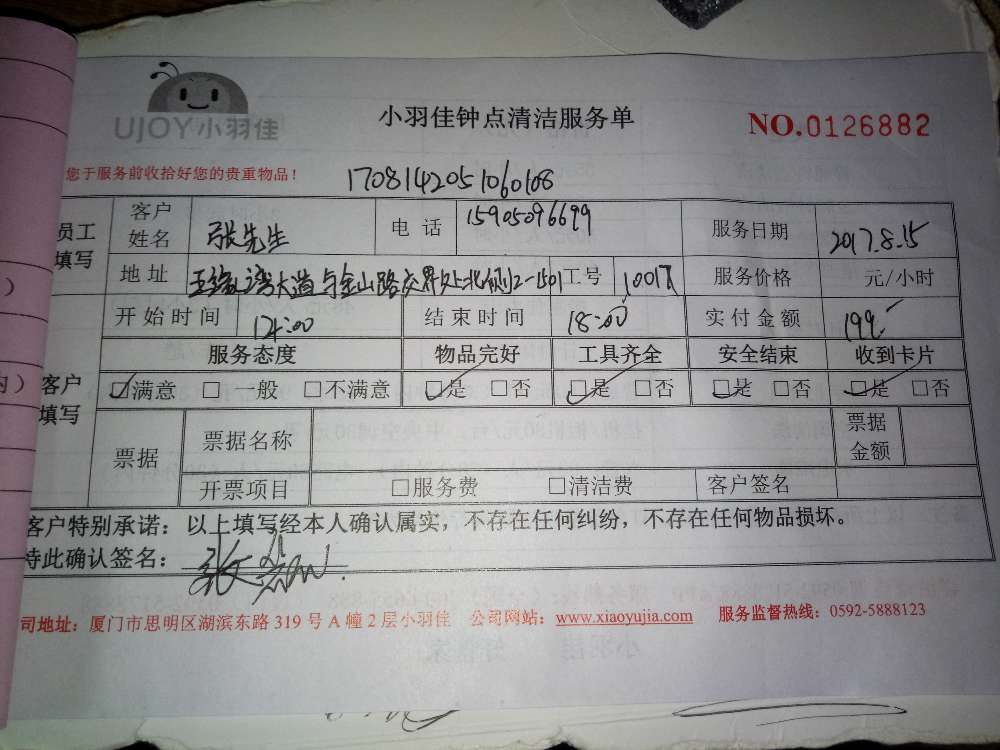 UJOY小羽佳
小羽佳钟点清洁服务单
NO.0126882
您于服务前收拾好您的贵重物品！
1708142051060108
员工填写 客户姓名 张先生 电话 15905096699 服务日期 2017.8.15
地址 五缘湾大道与金山路交界处北侧12-1501 工号 10017 服务价格 元/小时
开始时间 14:00 结束时间 18:00 实付金额 199.-
客户填写 服务态度 物品完好 工具齐全 安全结束 收到卡片
☑满意 □一般 □不满意 ☑是 □否 ☑是 □否 ☑是 □否 ☑是 □否
票据 票据名称 票据金额
开票项目 □服务费 □清洁费 客户签名
客户特别承诺：以上填写经本人确认属实，不存在任何纠纷，不存在任何物品损坏。
特此确认签名：
司地址：厦门市思明区湖滨东路319号A幢2层小羽佳 公司网站：www.xiaoyujia.com 服务监督热线：0592-5888123